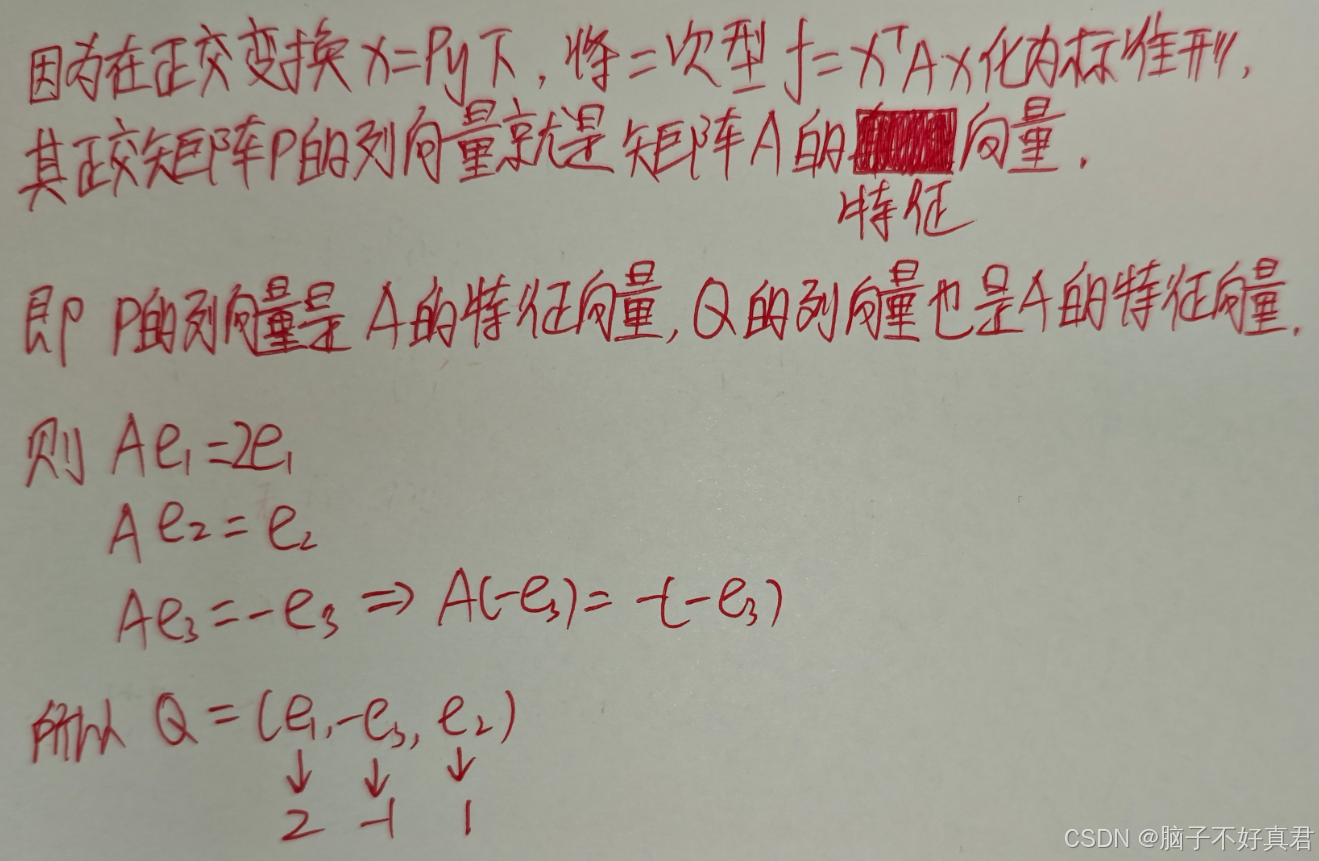 因为在正交变换 x=Py下，将二次型 f=xᵀAx化为标准形，
其正交矩阵P的列向量就是矩阵A的 向量．
特征
即 P的列向量是 A的特征向量，Q的列向量也是A的特征向量．
则 Ae₁=2e₁
Ae₂=e₂
Ae₃=-e₃ ⇒ A(-e₃)= -(-e₃)
所以 Q=(e₁,-e₃, e₂)
↓ ↓ ↓
2 -1 1
CSDN @脑子不好真君